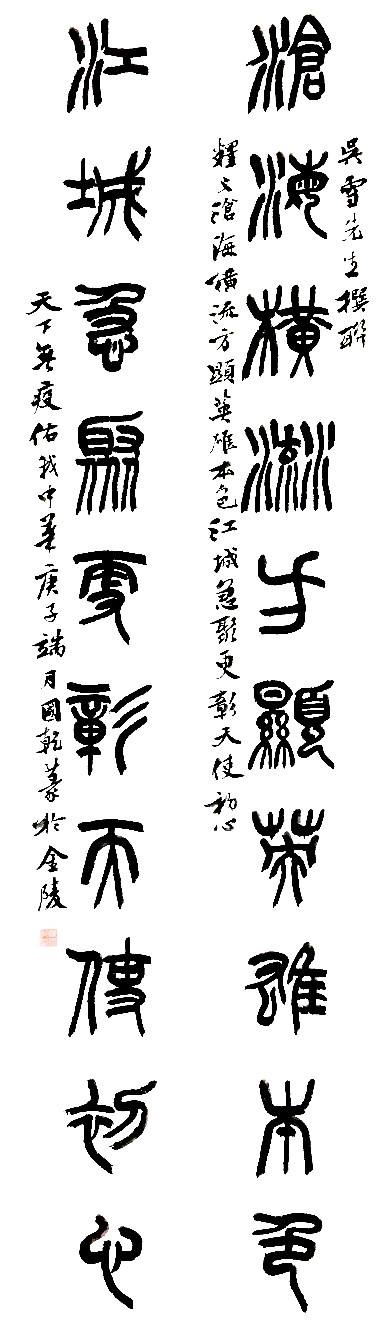 吳雪先生撰聯
滄海橫流方顯英雄本色
釋文滄海橫流方顯英雄本色江城急聚更彰天使初心
江城急聚更彰天使初心
天下無疫佑我中華庚子端月國乾篆於金陵